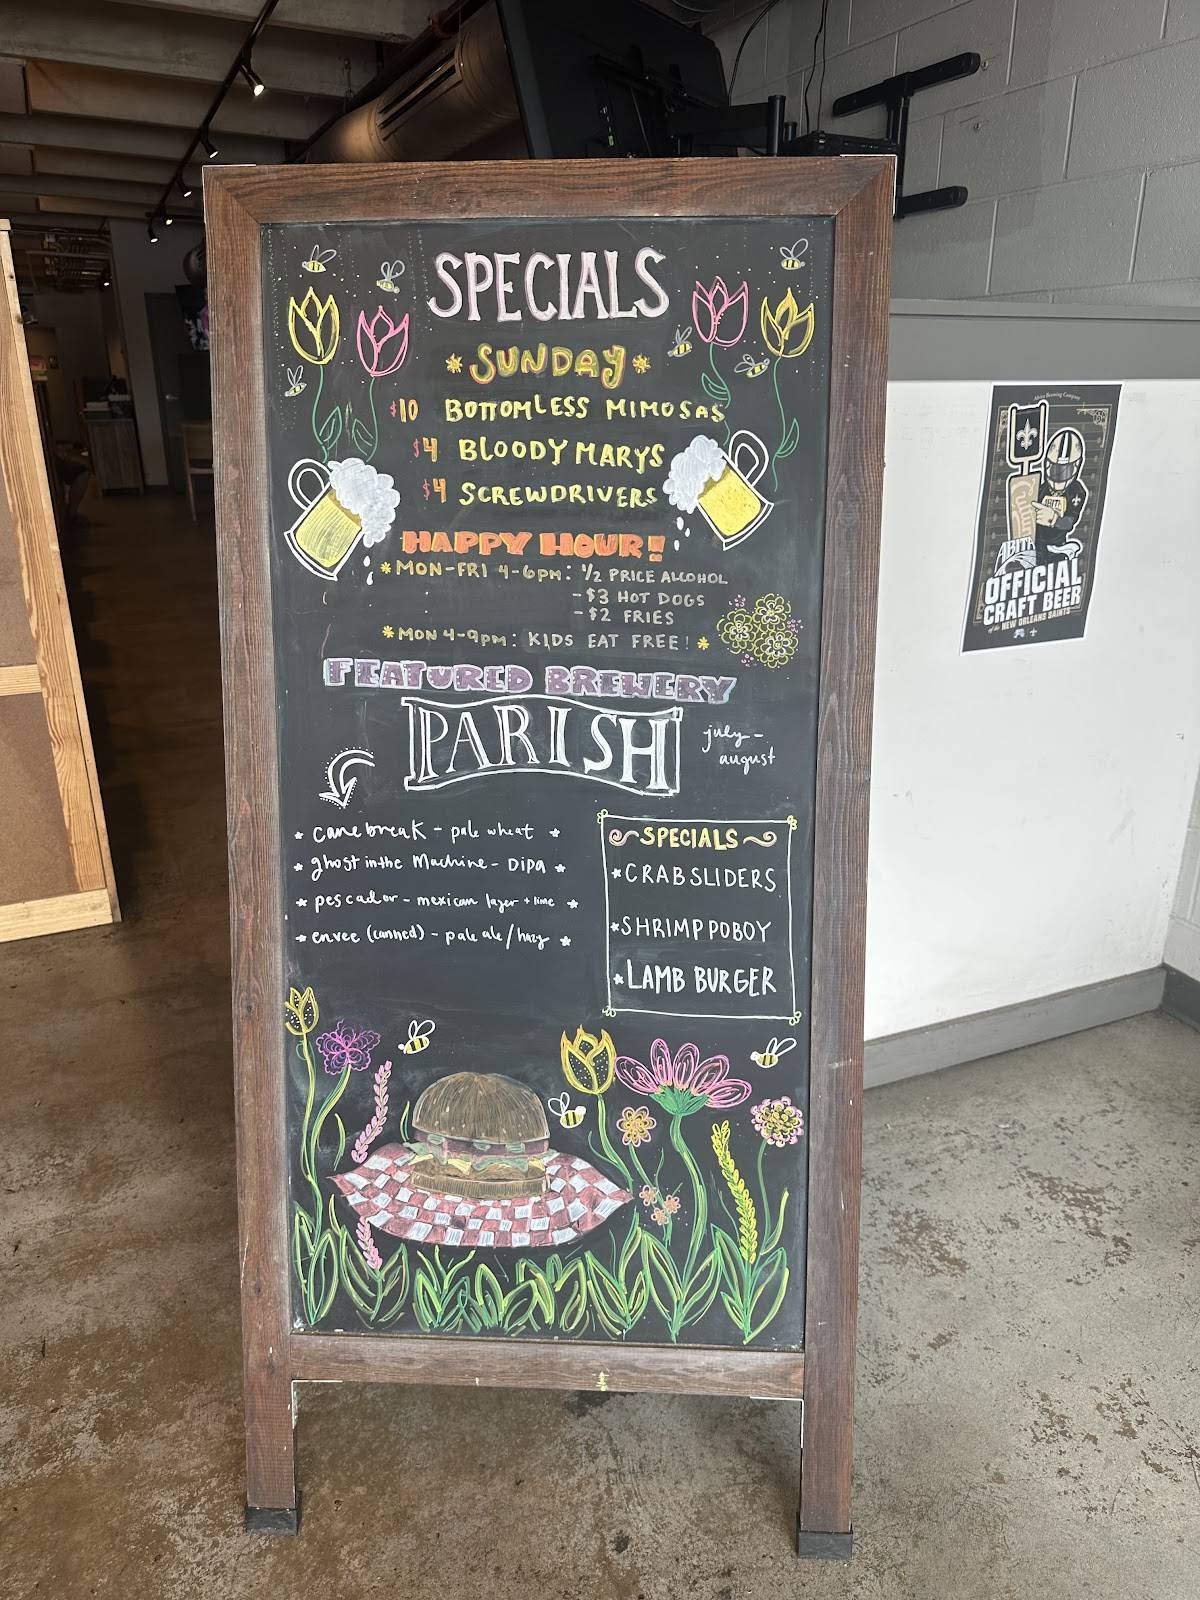 SPECIALS
SUNDAY
$10 BOTTOMLESS MIMOSAS
$4 BLOODY MARYS
$4 SCREWDRIVERS
HAPPY HOUR!
*MON-FRI 4-6PM: 1/2 PRICE ALCOHOL
-$3 HOT DOGS
-$2 FRIES
*MON 4-9PM: KIDS EAT FREE! *
FEATURED BREWERY
PARISH
july -
august
* canebreak - pale wheat *
* ghost in the Machine - DIPA *
* pescador - mexican lager + lime *
* envee (canned) - pale ale/hazy *
SPECIALS
*CRAB SLIDERS
*SHRIMP POBOY
*LAMB BURGER
Abita Brewing Company
ABITA
ABITA
OFFICIAL
CRAFT BEER
of the NEW ORLEANS SAINTS